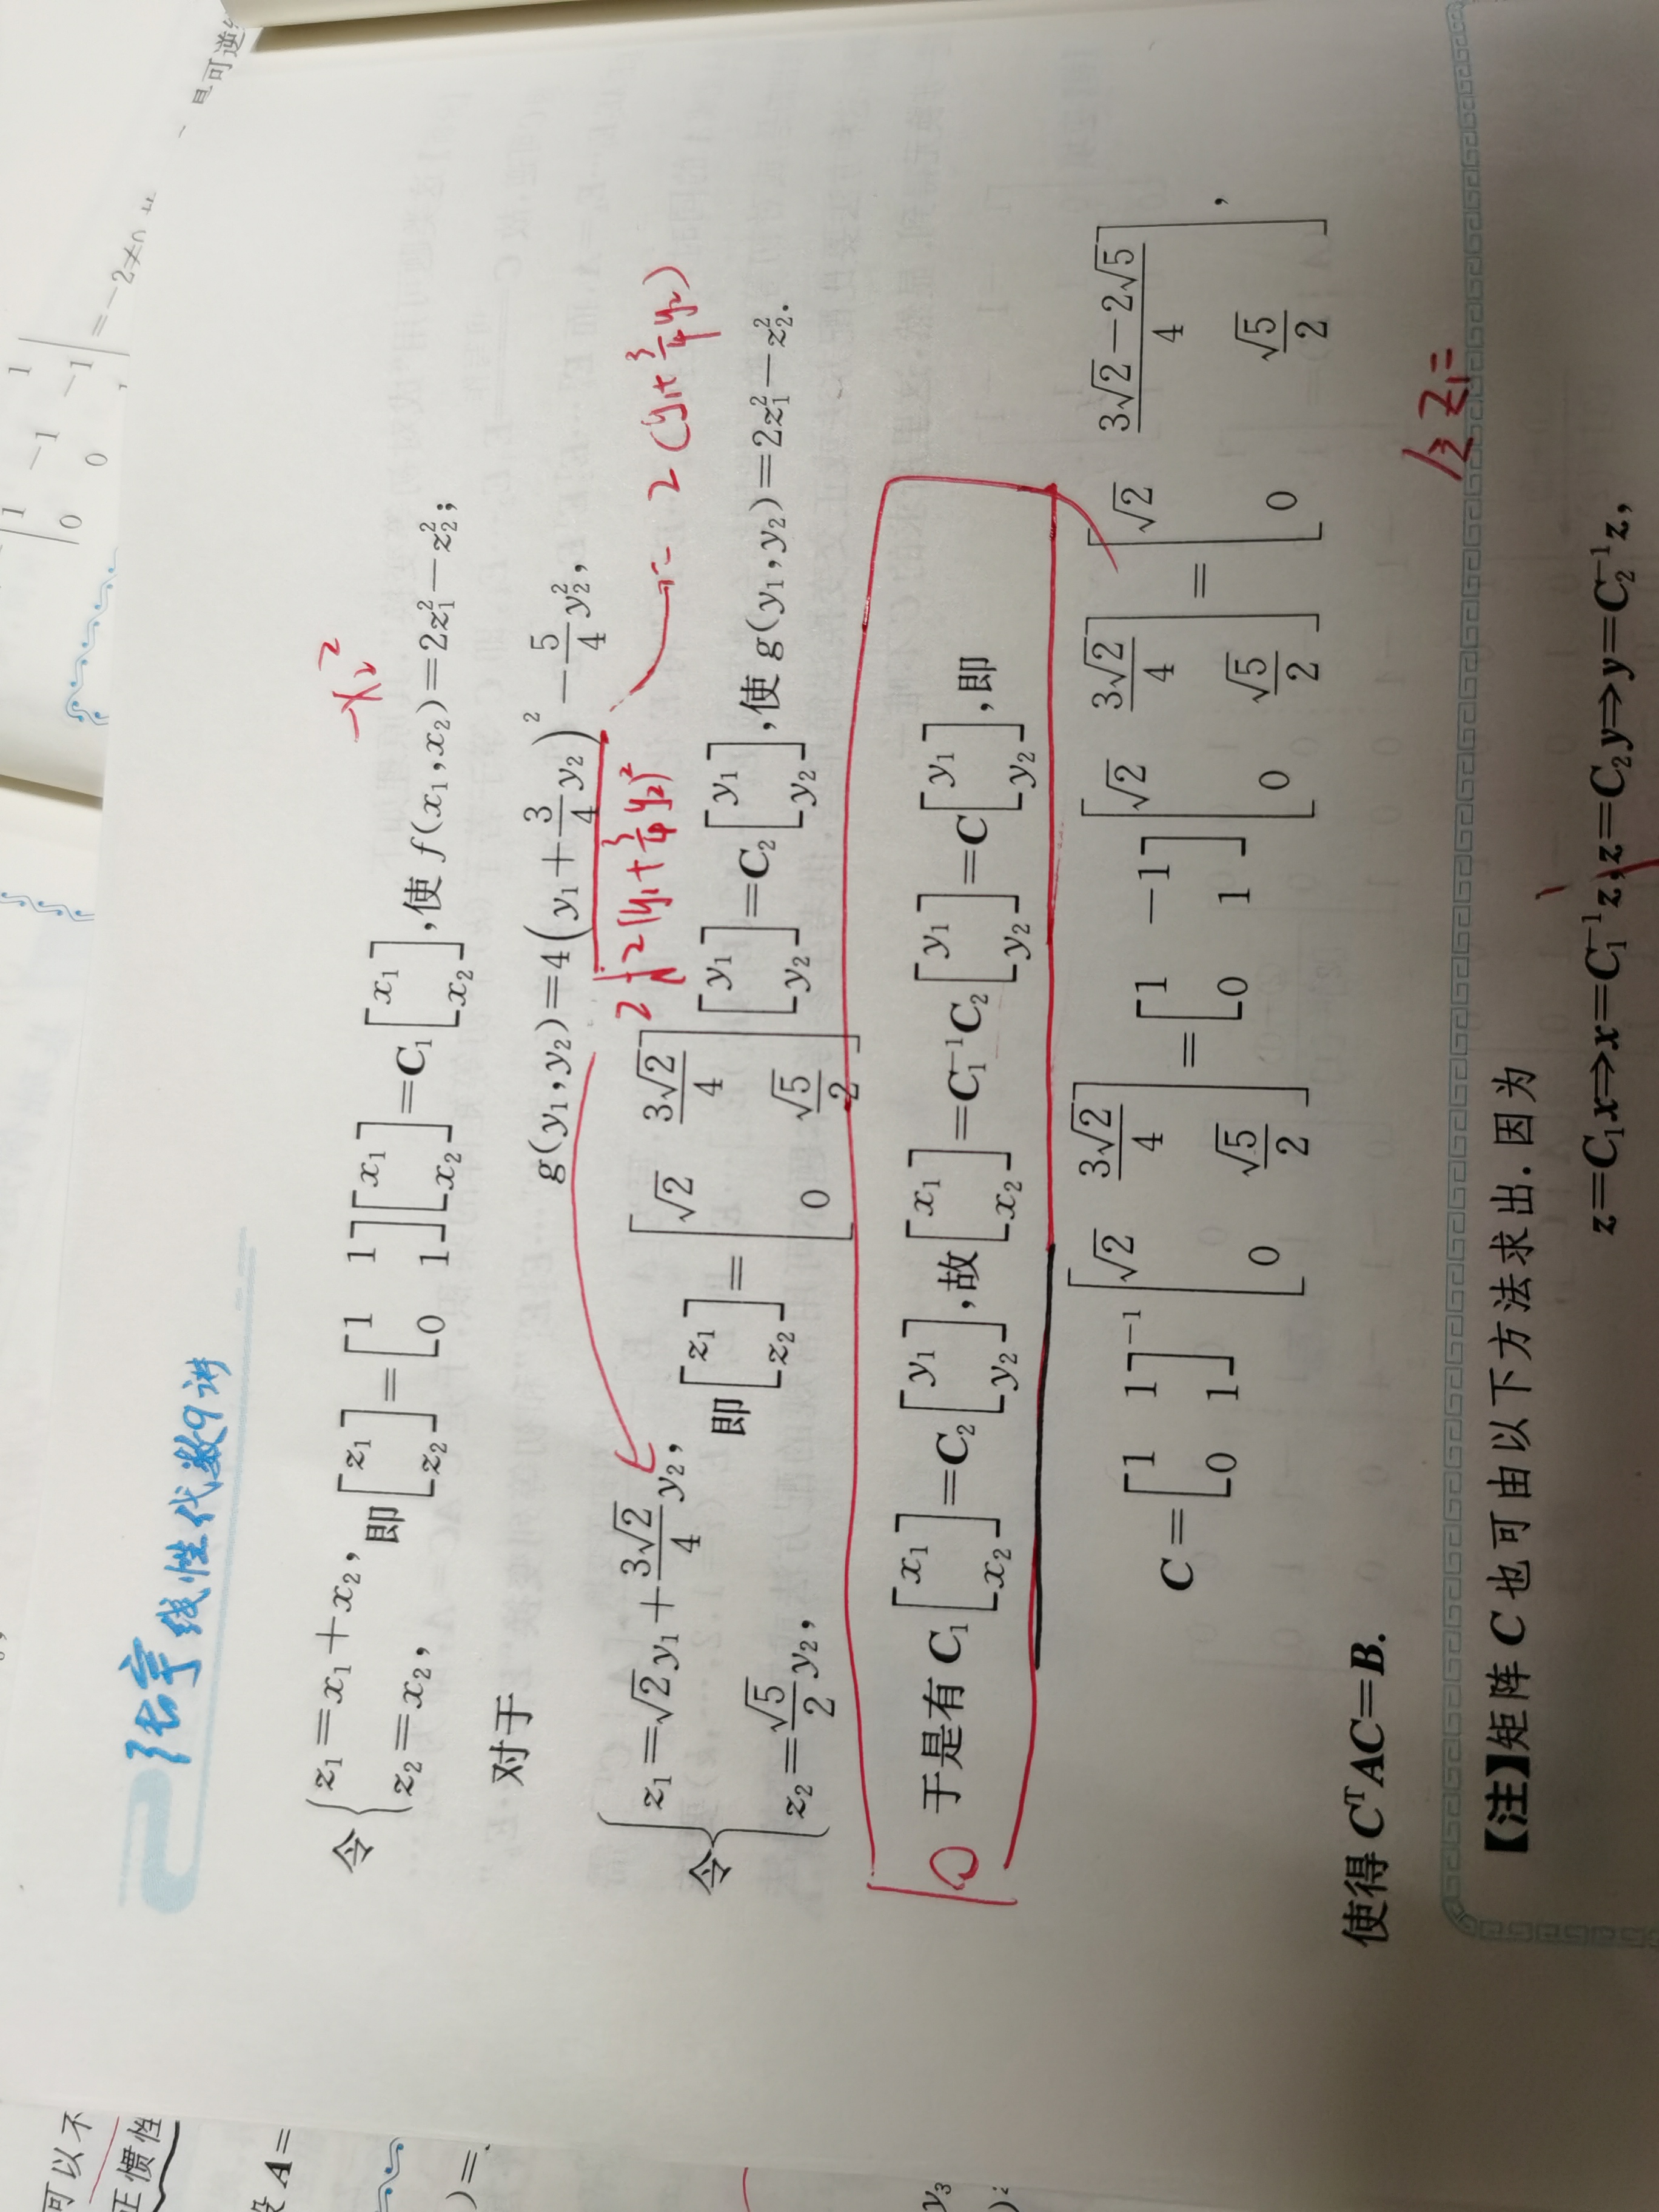 张宇线性代数9讲
令{z₁=x₁+x₂, z₂=x₂, 即[z₁ z₂]=[1 1; 0 1][x₁ x₂]=C₁[x₁ x₂],使 f(x₁,x₂)=2z₁²-z₂²;
-x₂²
对于
g(y₁,y₂)=4(y₁+3/4 y₂)²-5/4 y₂²,
2[√2(y₁+3/4 y₂)]²
2(y₁+3/4 y₂)
令{z₁=√2y₁+3√2/4 y₂, z₂=√5/2 y₂, 即[z₁ z₂]=[√2 3√2/4; 0 √5/2][y₁ y₂]=C₂[y₁ y₂],使 g(y₁,y₂)=2z₁²-z₂².
于是有 C₁[x₁ x₂]=C₂[y₁ y₂],故[x₁ x₂]=C₁⁻¹C₂[y₁ y₂]=C[y₁ y₂],即
C=[1 1; 0 1]⁻¹[√2 3√2/4; 0 √5/2]=[1 -1; 0 1][√2 3√2/4; 0 √5/2]=[√2 (3√2-2√5)/4; 0 √5/2],
使得 CᵀAC=B.
√2 z₁=
【注】矩阵 C 也可由以下方法求出.因为
z=C₁x⇒x=C₁⁻¹z,z=C₂y⇒y=C₂⁻¹z,
可以不
正惯性
A=
=-2≠0